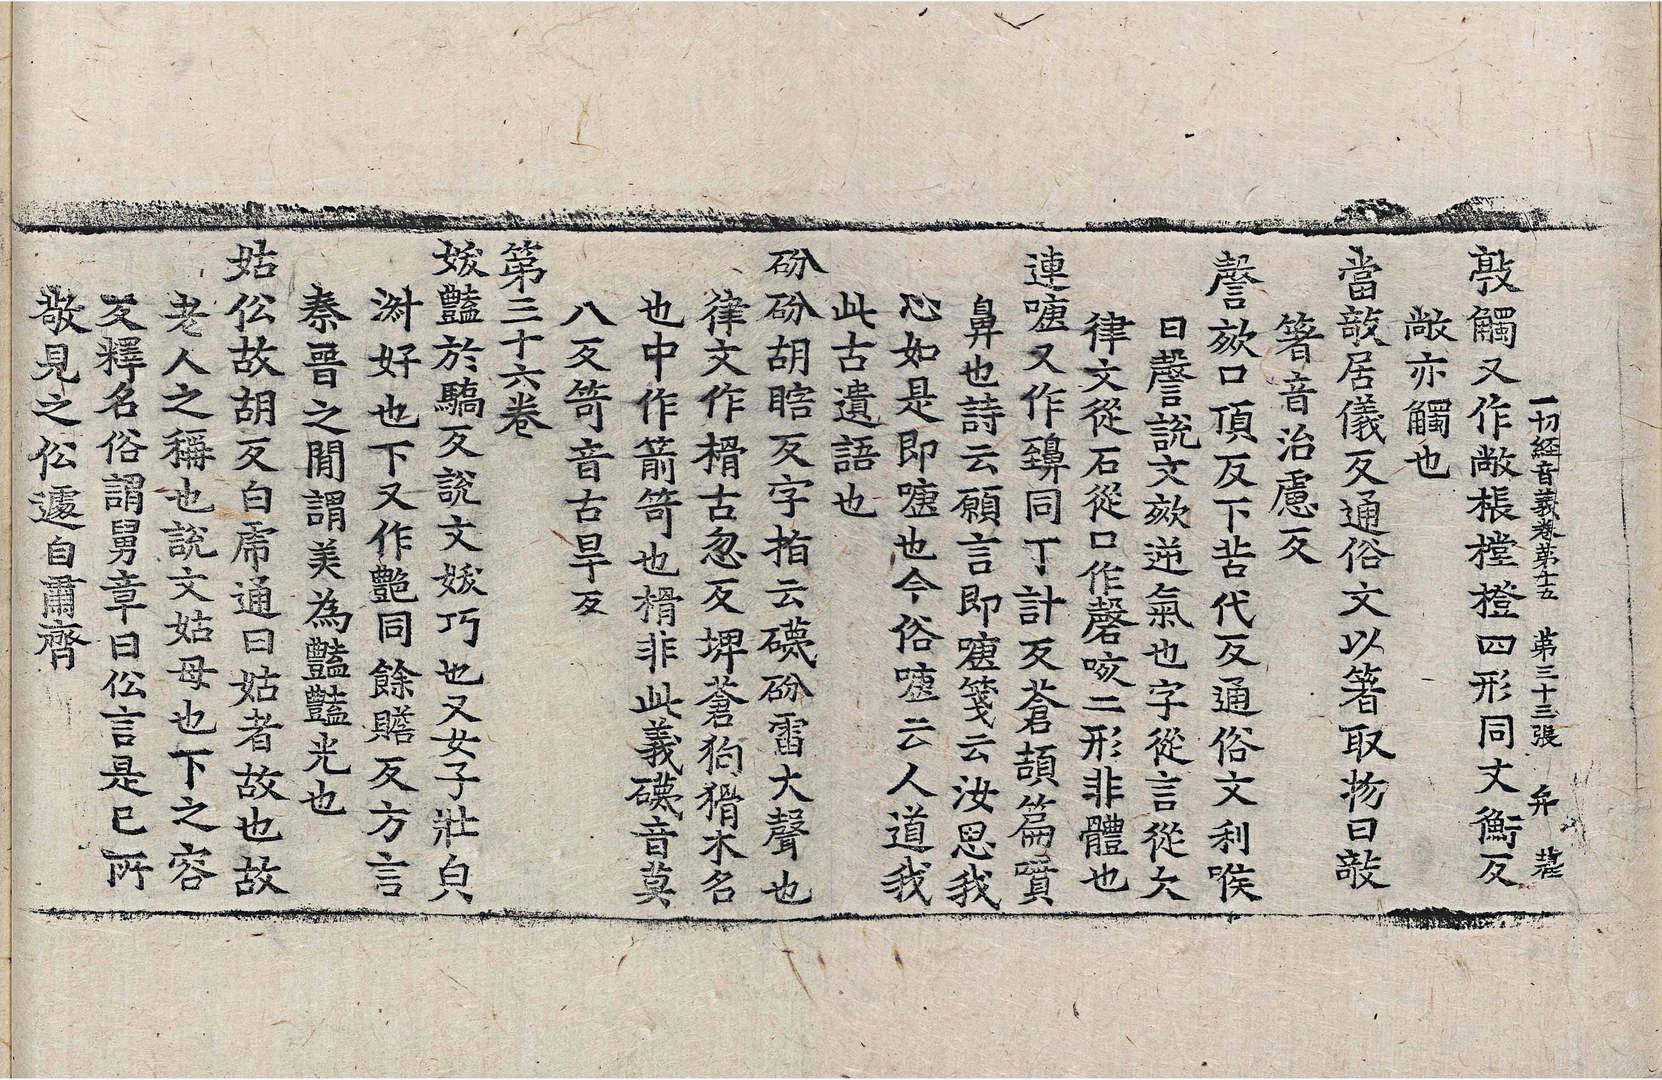 一切經音義卷第十五 第三十三張 弁
敦觸又作敞棖樘橙四形同丈衡反
敞亦觸也
當敧居儀反通俗文以箸取物曰敧
箸音治慮反
謦欬口頂反下苦代反通俗文利喉
曰謦說文欬逆氣也字從言從欠
律文從石從口作磬咳二形非體也
連嚏又作䶍同丁計反蒼頡篇嚏
鼻也詩云願言即嚏箋云汝思我
心如是即嚏也今俗嚏云人道我
此古遺語也
砏砏胡瞎反字指云礣砏雷大聲也
律文作榾古忽反埤蒼狗榾木名
也中作箭笴也榾非此義礣音莫
八反笴音古旱反
第三十六卷
妭豔於驕反說文妭巧也又女子壯皃
㴬好也下又作艷同餘贍反方言
秦晉之閒謂美為豔豔光也
姑伀故胡反白虎通曰姑者故也故
老人之稱也說文姑母也下之容
反釋名俗謂舅章曰伀言是己所
敬見之伀遽自肅齊